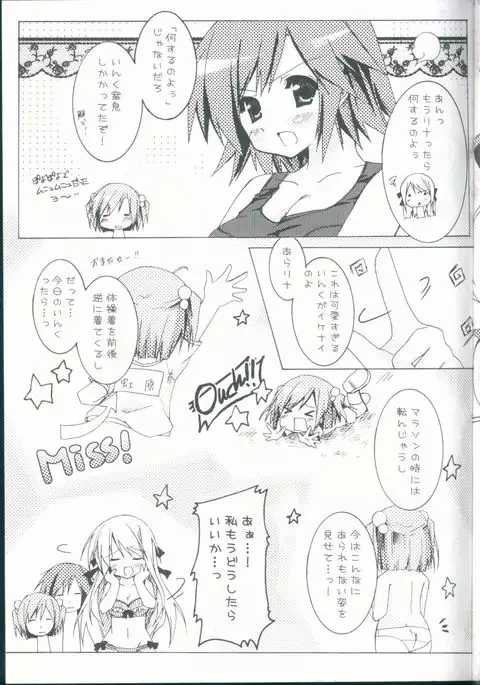 あんっ
もうリナったら
何するのよぅ
「何するのよぅ」
じゃないだろ
いんく窒息
しかかってたぞ!
ぽよぽよで
おまたせー!!
これは可愛すぎる
いんくがイケナイ
のよ
あらリナ
体操着を前後
逆に着てくるし
だって…
今日のいんく
ったら…っ
虹原
Miss!
Ouch!!
マラソンの時には
転んじゃうし
今はこんなに
あられもない姿を
見せて…っ!
あぁ…!
私もうどうしたら
いいか…っ